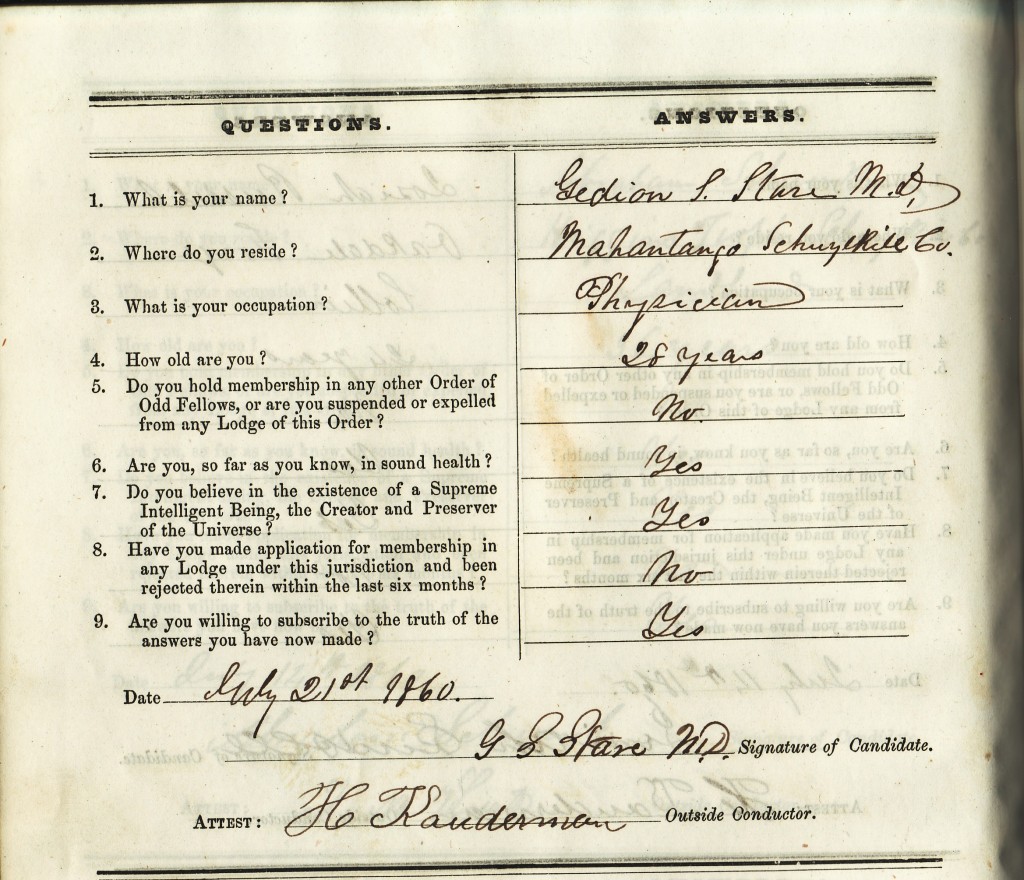 QUESTIONS. ANSWERS.
1. What is your name? Gedion S. Stare M.D,
2. Where do you reside? Mahantango Schuylkill Co.
3. What is your occupation? Physician
4. How old are you? 28 years
5. Do you hold membership in any other Order of
Odd Fellows, or are you suspended or expelled
from any Lodge of this Order? No
6. Are you, so far as you know, in sound health? Yes
7. Do you believe in the existence of a Supreme
Intelligent Being, the Creator and Preserver
of the Universe? Yes
8. Have you made application for membership in
any Lodge under this jurisdiction and been
rejected therein within the last six months? No
9. Are you willing to subscribe to the truth of the
answers you have now made? Yes
Date July 21st 1860.
G S Stare M.D. Signature of Candidate.
ATTEST: H Kauderman Outside Conductor.